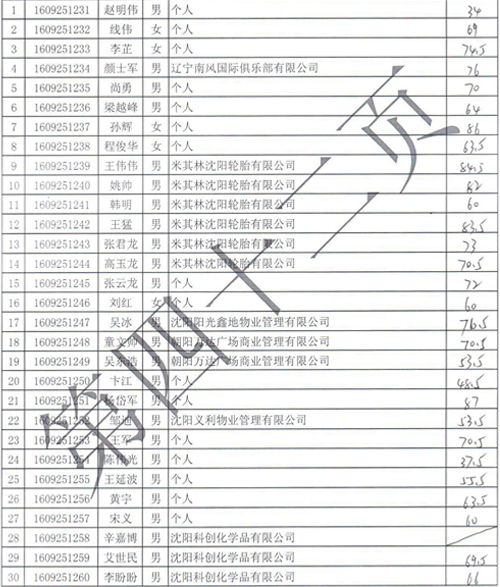 1 1609251231 赵明伟 男 个人 34
2 1609251232 线伟 女 个人 69
3 1609251233 李芷 女 个人 74.5
4 1609251234 颜士军 男 辽宁南风国际俱乐部有限公司 76
5 1609251235 尚勇 男 个人 70
6 1609251236 梁越峰 男 个人 64
7 1609251237 孙辉 女 个人 86
8 1609251238 程俊华 女 个人 63.5
9 1609251239 王伟伟 男 米其林沈阳轮胎有限公司 84.5
10 1609251240 姚帅 男 米其林沈阳轮胎有限公司 82
11 1609251241 韩明 男 米其林沈阳轮胎有限公司 60
12 1609251242 王猛 男 米其林沈阳轮胎有限公司 83.5
13 1609251243 张君龙 男 米其林沈阳轮胎有限公司 73
14 1609251244 高玉龙 男 米其林沈阳轮胎有限公司 70.5
15 1609251245 张云龙 男 个人 72
16 1609251246 刘红 女 个人 60
17 1609251247 吴冰 男 沈阳阳光鑫地物业管理有限公司 76.5
18 1609251248 童文帅 男 朝阳万达广场商业管理有限公司 70.5
19 1609251249 吴东浩 男 朝阳万达广场商业管理有限公司 53.5
20 1609251250 卞江 男 个人 48.5
21 1609251251 杨岱军 男 个人 87
22 1609251252 邹迪 男 沈阳义利物业管理有限公司 53.5
23 1609251253 王军 男 个人 70.5
24 1609251254 陈伟光 男 个人 37.5
25 1609251255 王延波 男 个人 55.5
26 1609251256 黄宇 男 个人 63.5
27 1609251257 宋义 男 个人 60
28 1609251258 辛嘉博 男 沈阳科创化学品有限公司
29 1609251259 艾世民 男 沈阳科创化学品有限公司 69.5
30 1609251260 李盼盼 男 沈阳科创化学品有限公司 66
第四十二页